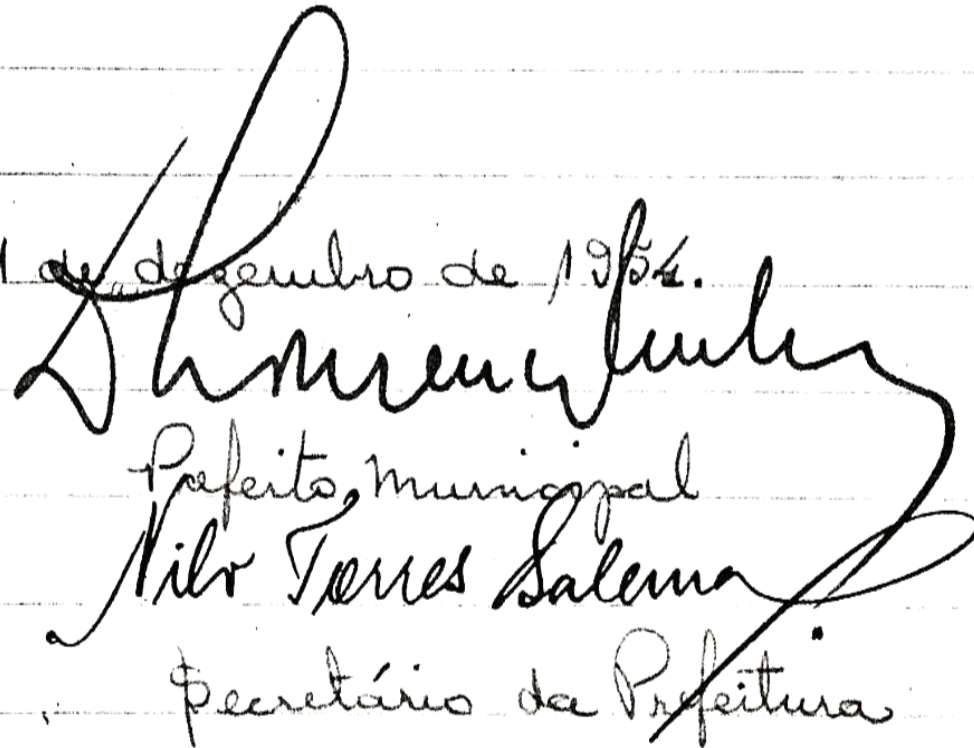 1 de dezembro de 1954.
Prefeito Municipal
Nilo Torres Salema
Secretário da Prefeitura